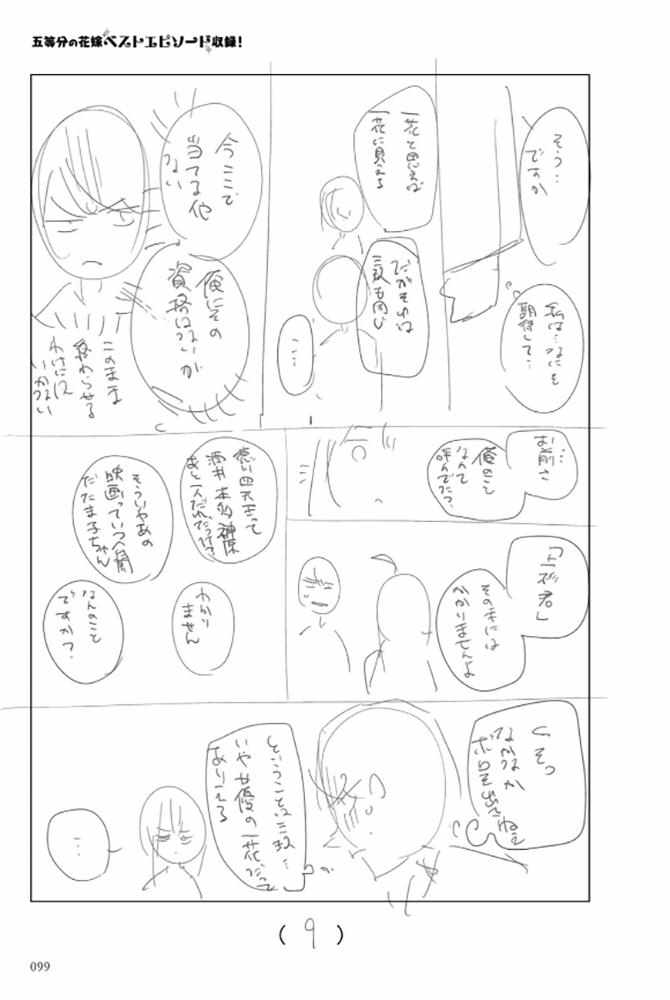 五等分の花嫁ベストエピソード収録!
そう…
ですか
私は…なにを
期待して…
一花と思えば
一花に見える
だがそれは
三玖も同じ
…
今ここで
当てるや
ない
俺にその
資格はないが
このまま
終わらせる
わけには
いかない
お前さ…
俺のこと
なんて
呼んでたっけ?
「上杉君」
その手には
かかりませんよ
徳川四天王って
酒井 本多 榊原
あと一人だれだっけ?
わかり
ません
そういやあの
映画っていつ公開
だたま子ちゃん
なんのこと
ですか?
くそっ
なかなか
ボロを出さねぇ
ということは三玖…
いや女優の一花だって
ありえる
…
(9)
099